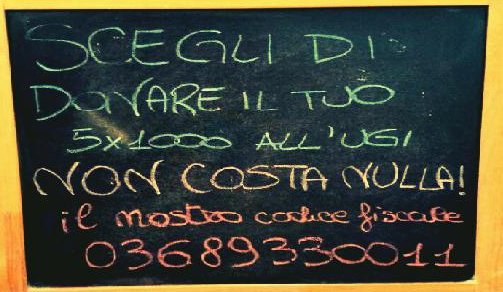 SCEGLI DI
DONARE IL TUO
5x1000 ALL'UGI
NON COSTA NULLA!
il nostro codice fiscale
03689330011